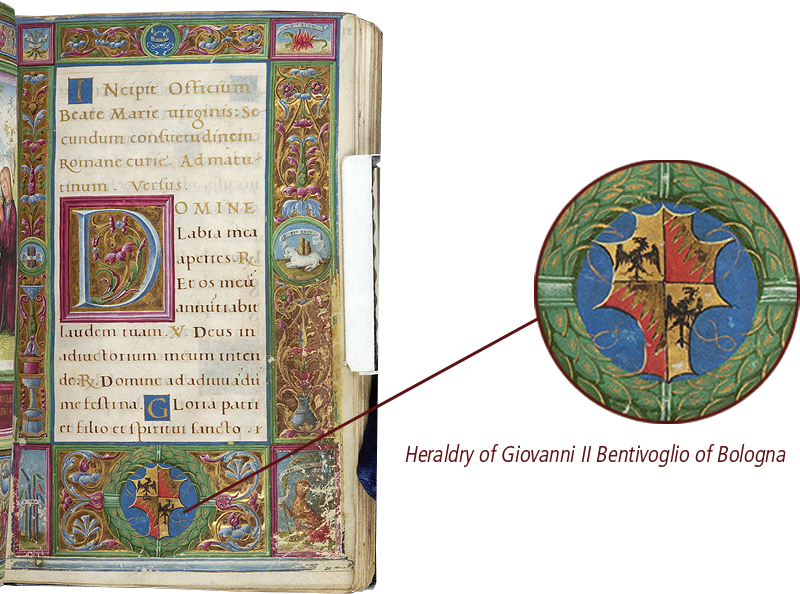 INcipit Officium
Beate Marie virginis: Se
cundum consuetudinem
Romane curie. Ad matu-
tinum. Versus.
DOMINE
Labia mea
aperies. R.
Et os meū
annūtiabit
laudem tuam. V. Deus in
adiutorium meum inten
de. R. Domine ad adiuuādū
me festina. Gloria patri
et filio et spiritui sancto
Heraldry of Giovanni II Bentivoglio of Bologna